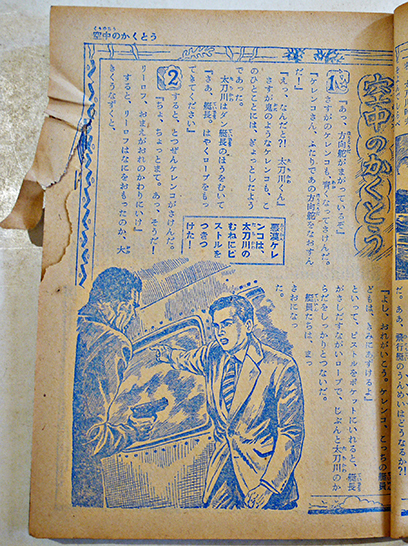 空中のかくとう
だ。ああ、飛行艇のうんめいはどうなるか?!
空中のかくとう
1
『あっ、方向舵がまがっているぞ』
さすがのケレンコも、青くなってさけんだ。
『ケレンコさん、ふたりであの方向舵をなおすん
だ!』
『えっ、なんだと?! 太刀川くん』
さすが鬼のようなケレンコも、こ
のひとことには、ぎょっとしたよう
であった。
太刀川はダン艇長のほうをむいて
『さあ、艇長。はやくロープをもっ
てきてください』
2
すると、とつぜんケレンコがさけんだ。
『ちょ、ちょっとまて。あっ、そうだ!
リーロフ、おまえがおれのかわりにいけ』
すると、リーロフはなにをおもったのか、大
きくうなずくと、
悪漢ケレ
ンコは、
太刀川の
むねにピ
ストルを
つきつ
けた!
『よし、おれがいこう。ケレンコ、こっちの艇員
どもは、きみにあずけるよ』
といって、ピストルをポケットにいれると、艇長
がさしだすながいロープで、じぶんと太刀川のか
らだをしっかりとつないだ。
艇長たちは、まっ
さおになっ
た。